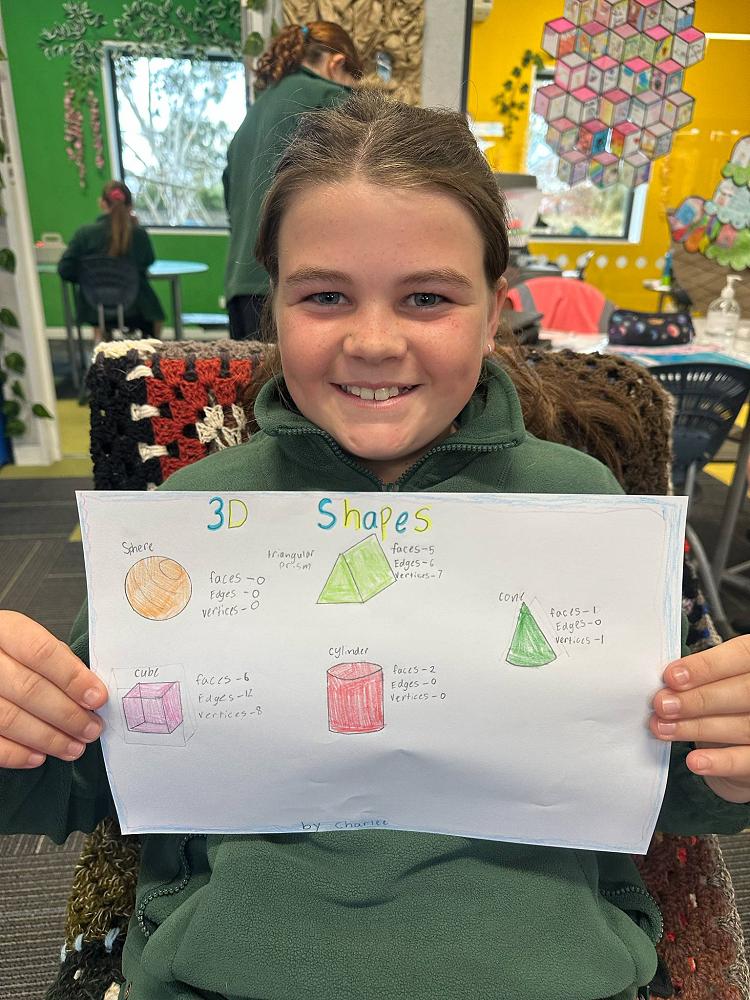 3D Shapes
Sphere
faces-0
Edges-0
vertices-0
triangular
prism
faces-5
Edges-6
Vertices-7
cone
faces-1
Edges-0
vertices-1
cube
faces-6
Edges-12
Vertices-8
cylinder
faces-2
Edges-0
Vertices-0
by Charlee